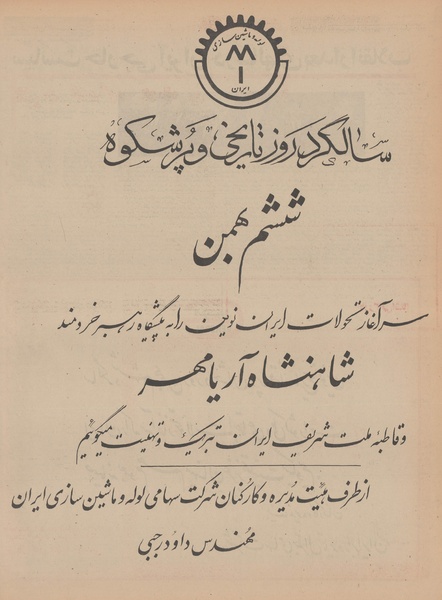 لوله و ماشین سازی
ایران
سالگرد روز تاریخی و پرشکوه
ششم بهمن
سرآغاز تحولات ایران نوین را به پیشگاه رهبر خردمند
شاهنشاه آریامهر
و قاطبهٔ ملت شریف ایران تبریک و تهنیت میگوئیم
از طرف هیئت مدیره و کارکنان شرکت سهامی لوله و ماشین سازی ایران
مهندس داود رجبی